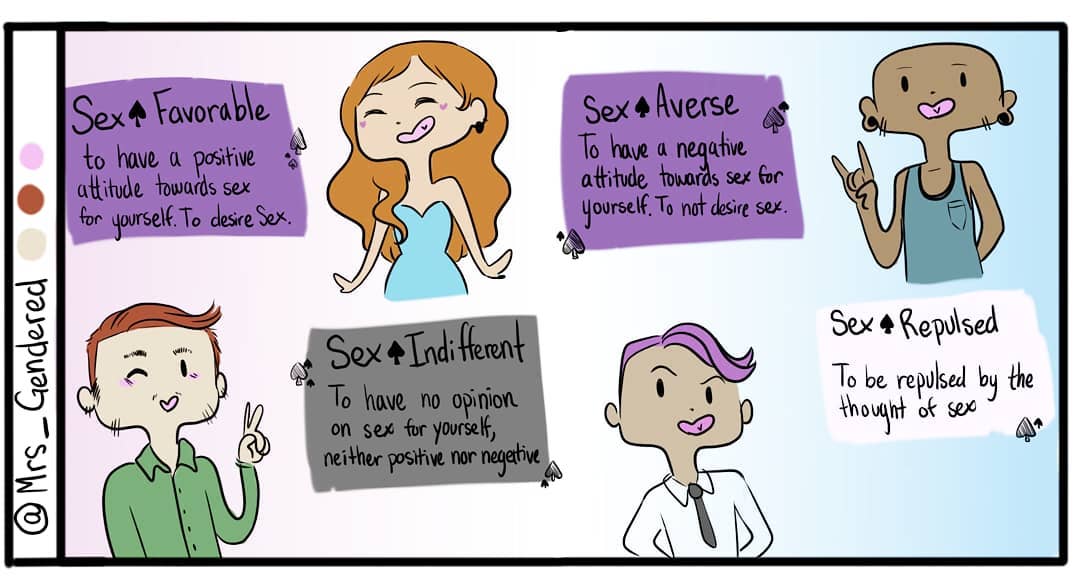 Sex♠Favorable
to have a positive
attitude towards sex
for yourself. To desire Sex.
Sex♠Averse
To have a negative
attitude towards sex for
yourself. To not desire sex.
Sex♠Indifferent
To have no opinion
on sex for yourself,
neither positive nor negative
Sex♠Repulsed
To be repulsed by the
thought of sex
@Mrs_Gendered